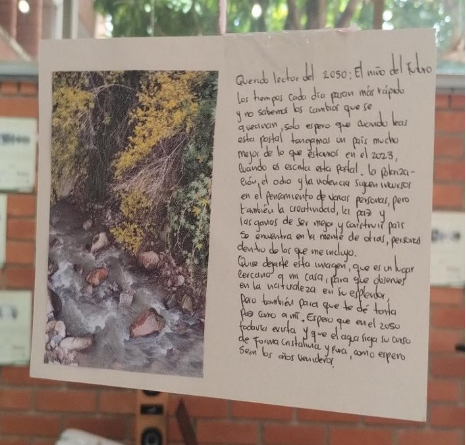 Querido lector del 2050: El niño del futuro
los tiempos cada dia pasan más rápido
y no sabemos los cambios que se
avecinan, solo espero que cuando leas
esta postal tengamos un país mucho
mejor de lo que estamos en el 2023,
cuando es escrita esta postal. La polariza-
ción, el odio y la violencia siguen inmersos
en el pensamiento de varias personas, pero
también la creatividad, la paz y
las ganas de ser mejor y construir país
se encuentra en la mente de otras, personas
dentro de las que me incluyo.
Quise dejarte esta imagen, que es un lugar
cercano a mi casa, para que observes
en la naturaleza en su esplendor,
pero también para que te de tanta
paz como a mi. Espero que en el 2050
todavía exista y que el agua siga su curso
de forma cristalina y pura, como espero
sean los años venideros